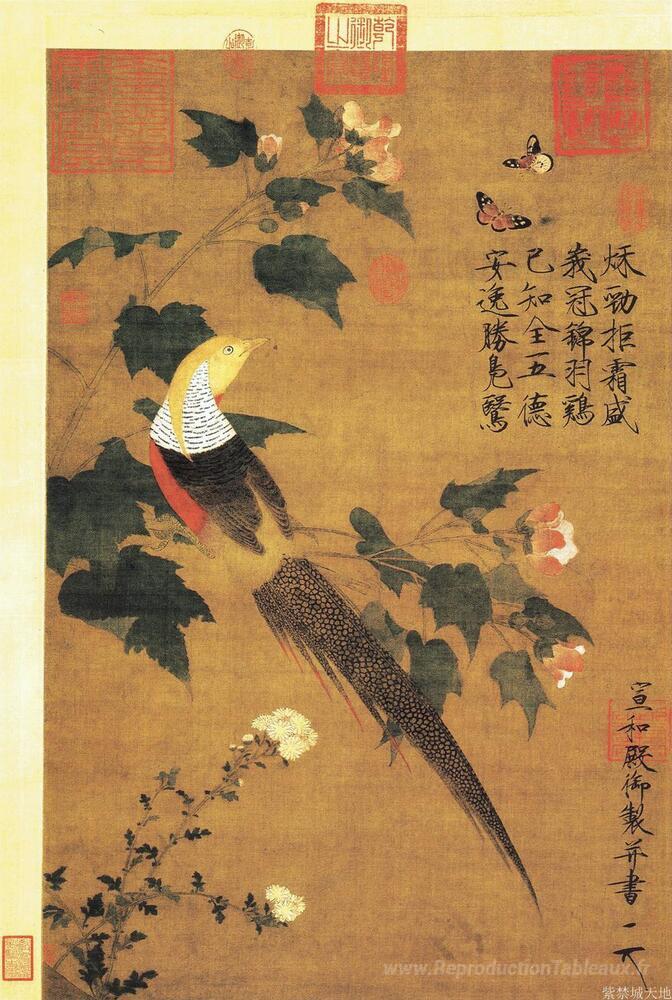 秌勁拒霜盛
峩冠錦羽鷄
已知全五德
安逸勝鳬鷖
宣和殿御製并書
www.ReproductionTableaux.fr
紫禁城天地